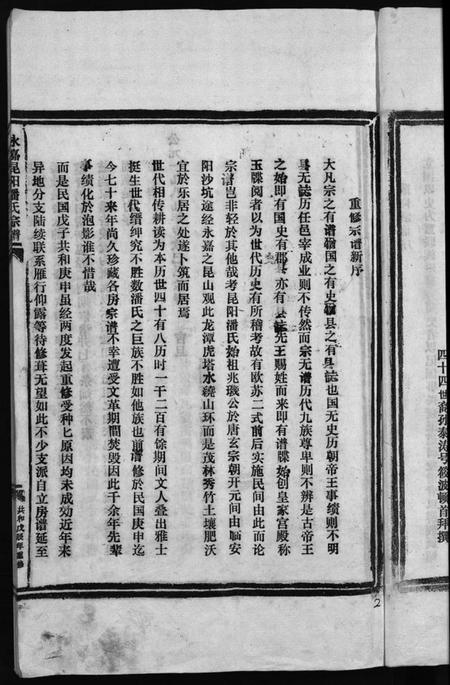 四十四世裔孙泰涛号毅波顿首拜撰
重修宗谱新序
大凡宗之有谱犹国之有史犹县之有县誌也国无史历朝帝王事绩则不明
县无誌历任邑宰成业则不传然而宗无谱历代九族尊卑则不辨是古帝王
之始即有国史有郡县亦有县誌先王赐姓而来即有谱牒始创皇家宫殿称
玉牒阅者以为世代历史有所稽考故有欧苏二式前后实施民间由此而论
宗谱岂非轻於其他哉考昆阳潘氏始祖兆璣公於唐玄宗朝开元间由临安
阳沙坑途经永嘉之昆山观此龙潭虎塔水繞山环而是茂林秀竹土壤肥沃
宜於乐居之处遂卜筑而居焉
世代相传耕读为本历世四十有八历时一千二百有馀期间文人叠出雅士
挺生世代缙绅究不胜数潘氏之巨族不胜如他族也前谱修於民国庚申迄
今七十来年尚久珍藏各房宗谱不幸遭受文革期間焚毁因此千余年先輩
事绩化於泡影谁不惜哉
而是民国戊子共和庚申虽经两度发起重修受种匕原因均未成効近年来
异地分支陆续联系雁行仰露等待修葺无望如此不少支派自立房谱延至
永嘉昆阳潘氏宗谱
共和戊辰年重修
2